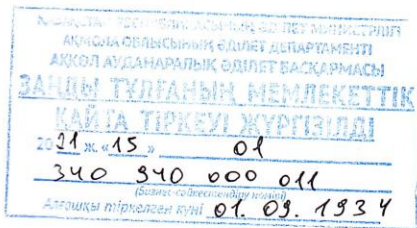 ҚАЗАҚСТАН РЕСПУБЛИКАСЫНЫҢ ӘДІЛЕТ МИНИСТРЛІГІ
АҚМОЛА ОБЛЫСЫНЫҢ ӘДІЛЕТ ДЕПАРТАМЕНТІ
АҚКӨЛ АУДАНАРАЛЫҚ ӘДІЛЕТ БАСҚАРМАСЫ
ЗАҢДЫ ТҰЛҒАНЫҢ МЕМЛЕКЕТТІК
ҚАЙТА ТІРКЕУІ ЖҮРГІЗІЛДІ
2021 ж. «15» 01
340 940 000 011
(бизнес сәйкестендіру нөмірі)
Алғашқы тіркелген күні 01. 09. 1934